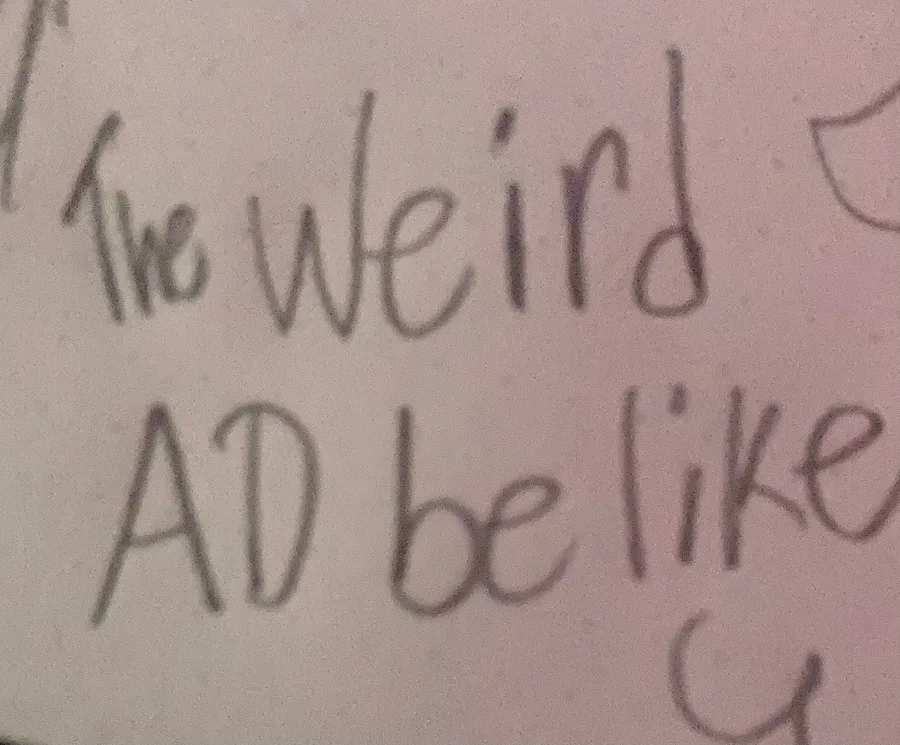 The Weird
AD be like